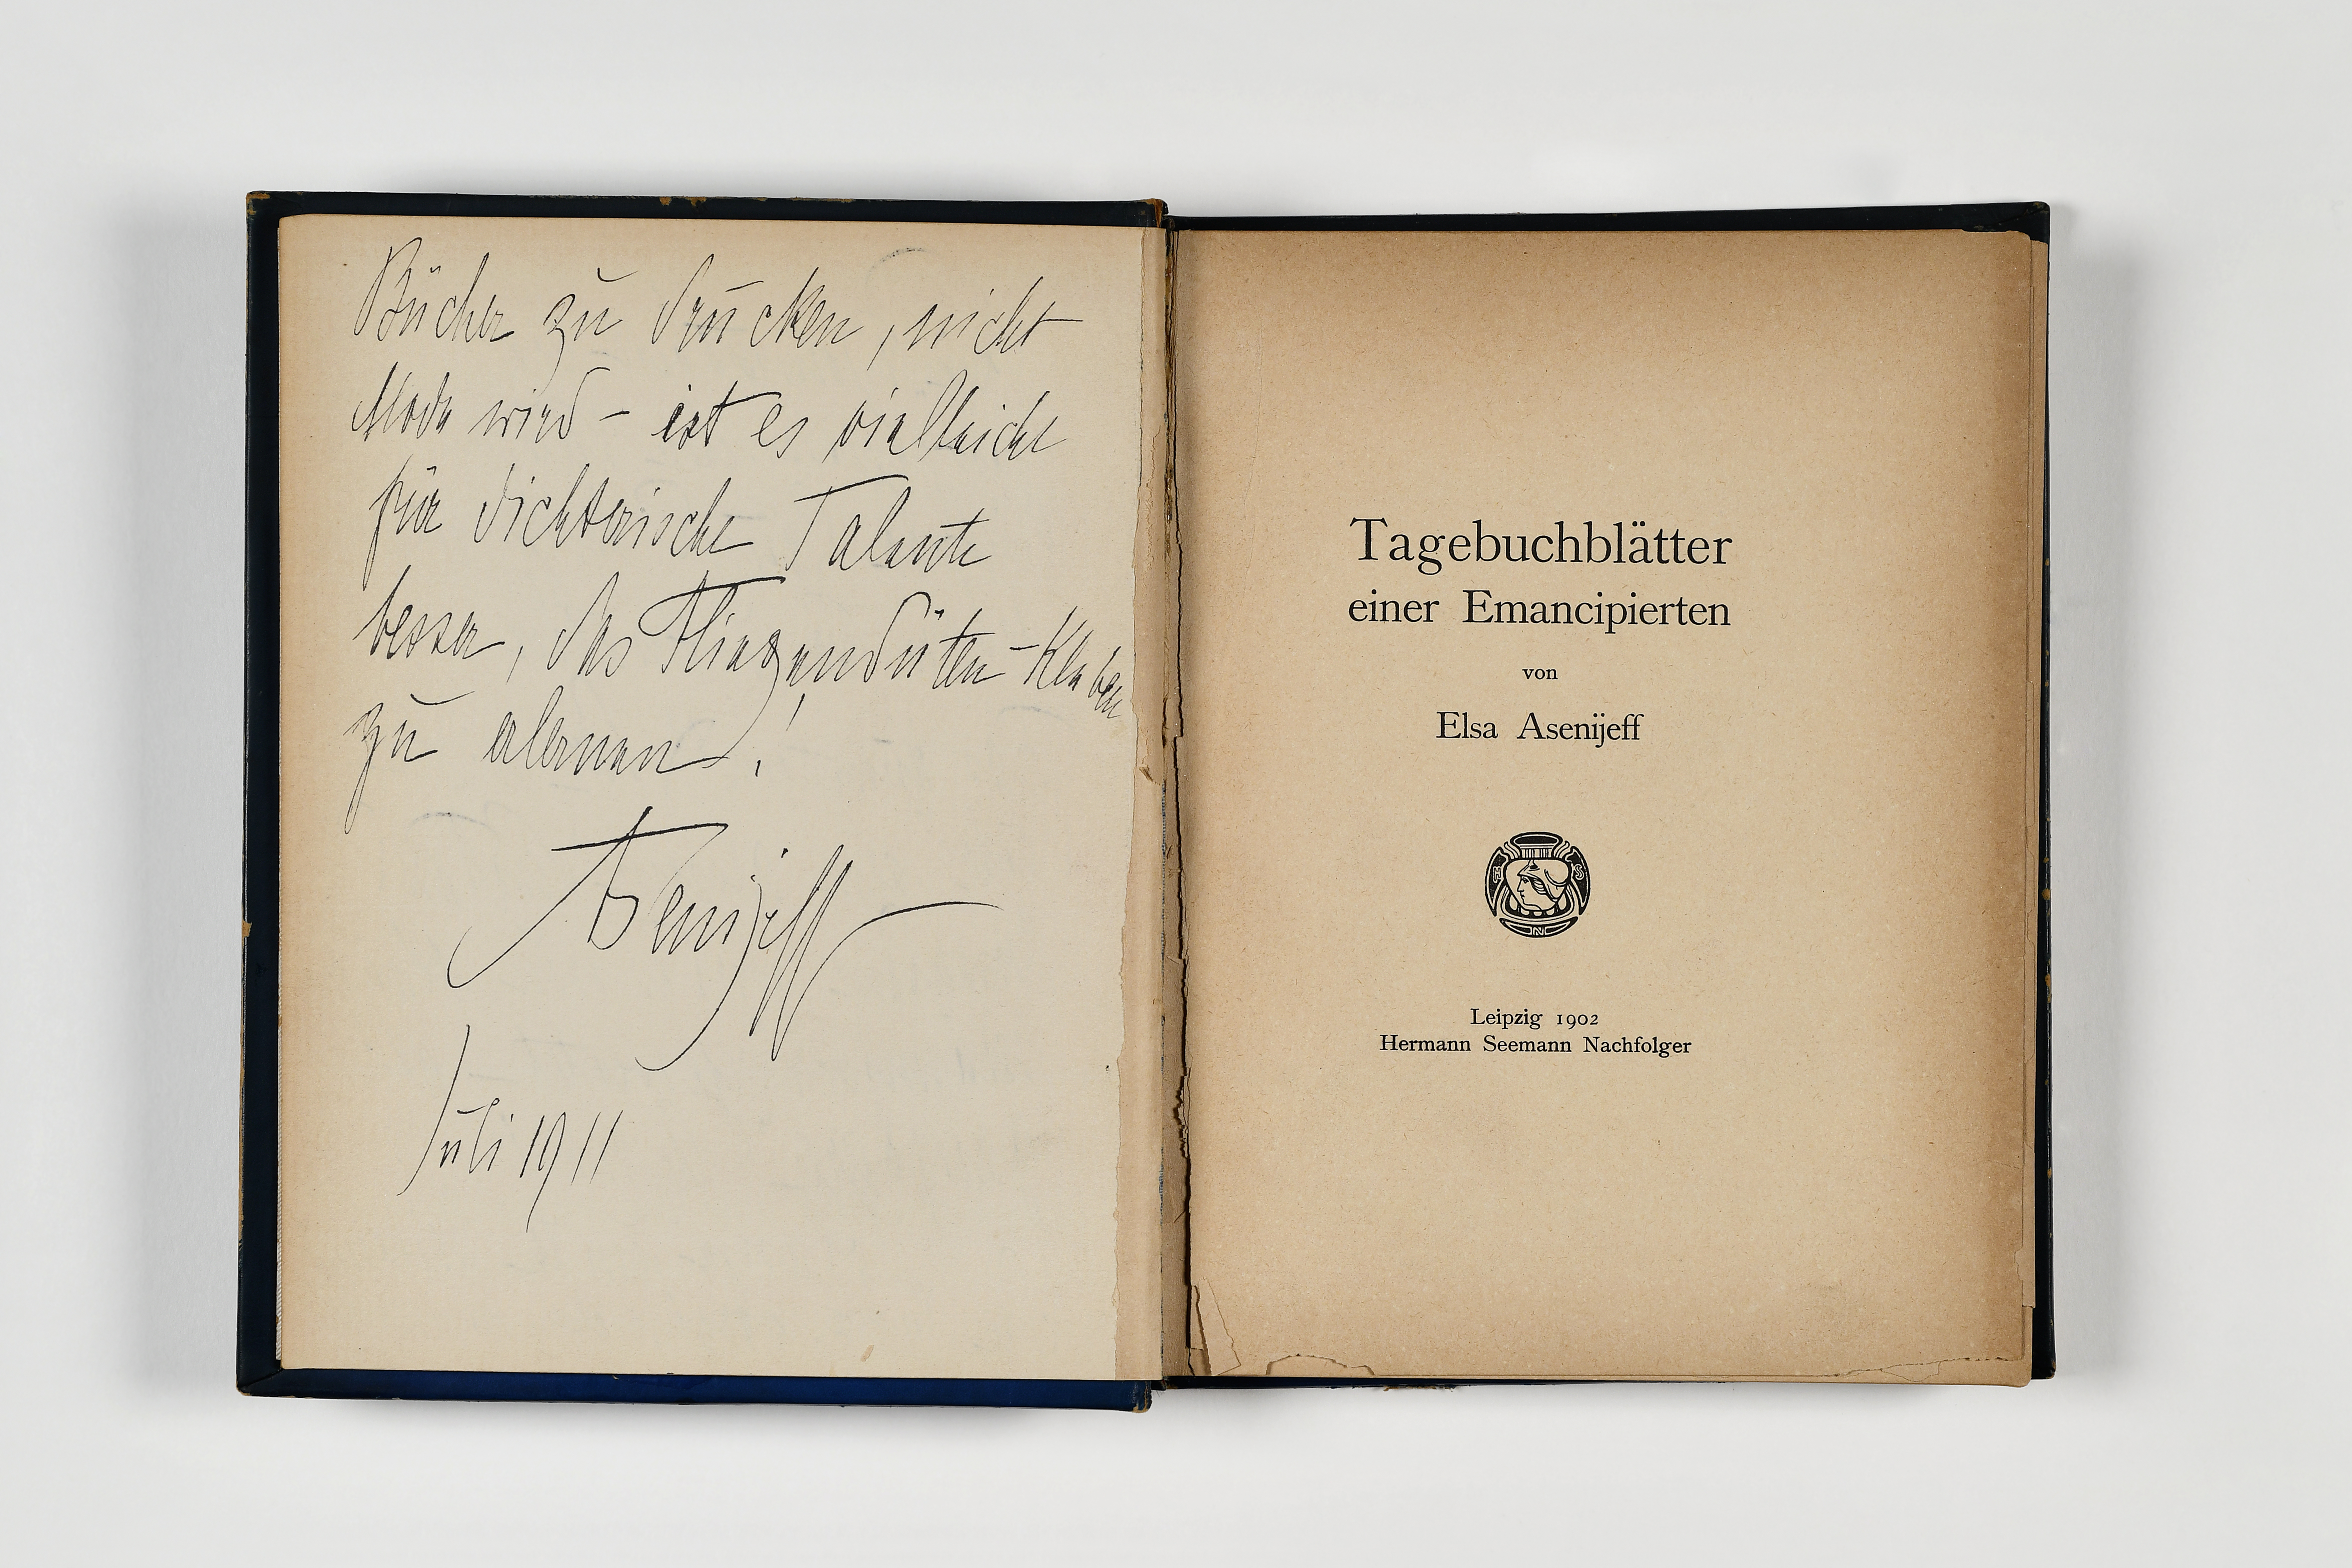 Bücher zu drucken, nicht
Mode wird – ist es vielleicht
für dichterische Talente
besser, das Fliegendüten-Kleben
zu erlernen!
Asenijeff
Juli 1911
Tagebuchblätter
einer Emancipierten
von
Elsa Asenijeff
H S
N
Leipzig 1902
Hermann Seemann Nachfolger